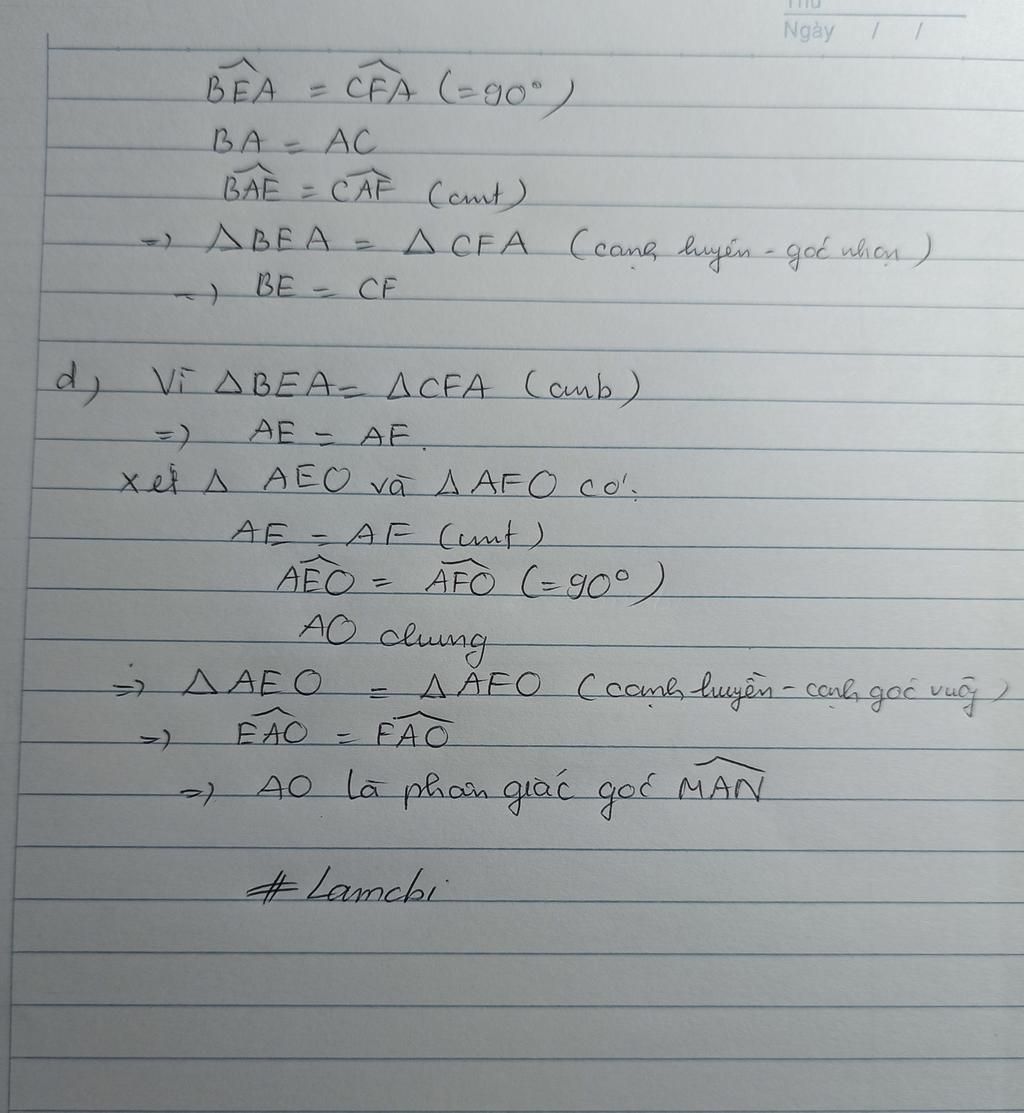 Thứ
Ngày / /
BEA = CFA (=90°)
BA = AC
BAE = CAF (cmt)
=> ΔBEA = ΔCFA (cạnh huyền - góc nhọn)
=> BE = CF
d) Vì ΔBEA = ΔCFA (cmb)
=> AE = AF.
xét Δ AEO và ΔAFO có:
AE = AF (cmt)
AEO = AFO (=90°)
AO chung
=> ΔAEO = ΔAFO (cạnh huyền - cạnh góc vuôg)
=> EAO = FAO
=> AO là phân giác góc MAN
# Lamchi